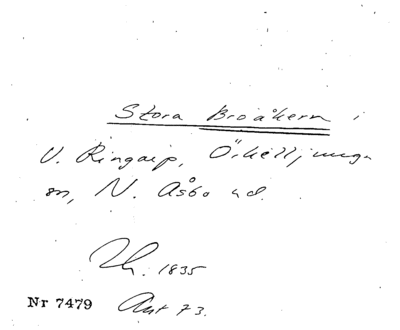 Stora Broåkern i
V. Ringarp, Örkelljunga
sn, N. Åsbo hd.
Lh. 1835
Nr 7479 Akt 73.